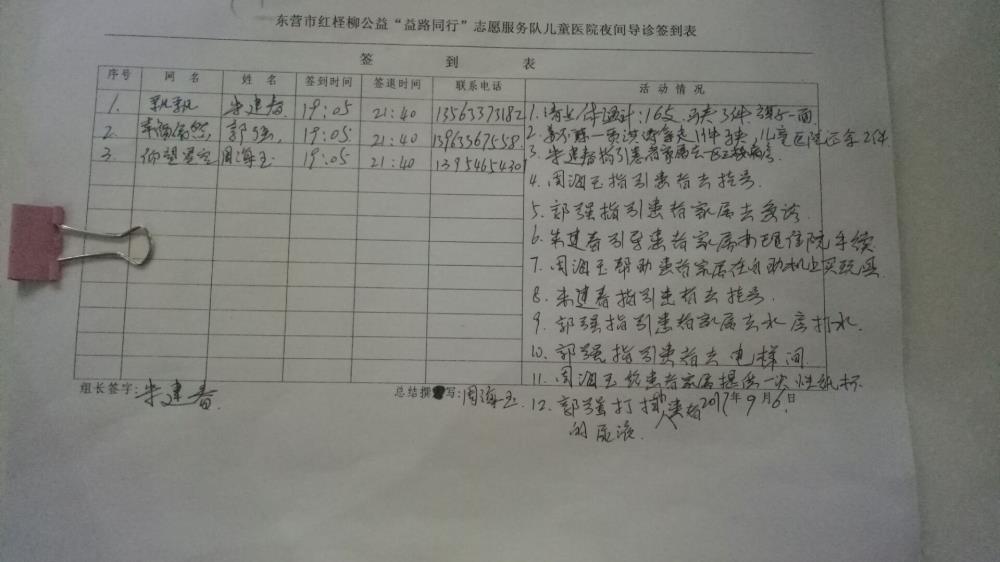 东营市红柽柳公益“益路同行”志愿服务队儿童医院夜间导诊签到表
签 到 表
序号 网 名 姓 名 签到时间 签退时间 联系电话 活 动 情 况
1. 朱建春 19:05 21:40 13563373182 1.
2. 郭强 19:05 21:40 13963567558 2.
3. 仰望星空 周海玉 19:05 21:40 13954654301 3. 朱建春指引患者家属去
4. 周海玉指引患者去挂号.
5. 郭强指引患者家属去复诊.
6. 朱建春引导患者家属办理住院手续
7. 周海玉帮助患者家属在自助机上买玩具
8. 朱建春指引患者去挂号.
9. 郭强指引患者家属去水房打水.
10. 郭强指引患者去电梯间.
11. 周海玉给患者家属提供一次性纸杯
组长签字:朱建春 总结撰写:周海玉. 12. 郭强打扫患者 2017年9月6日
的尿液.